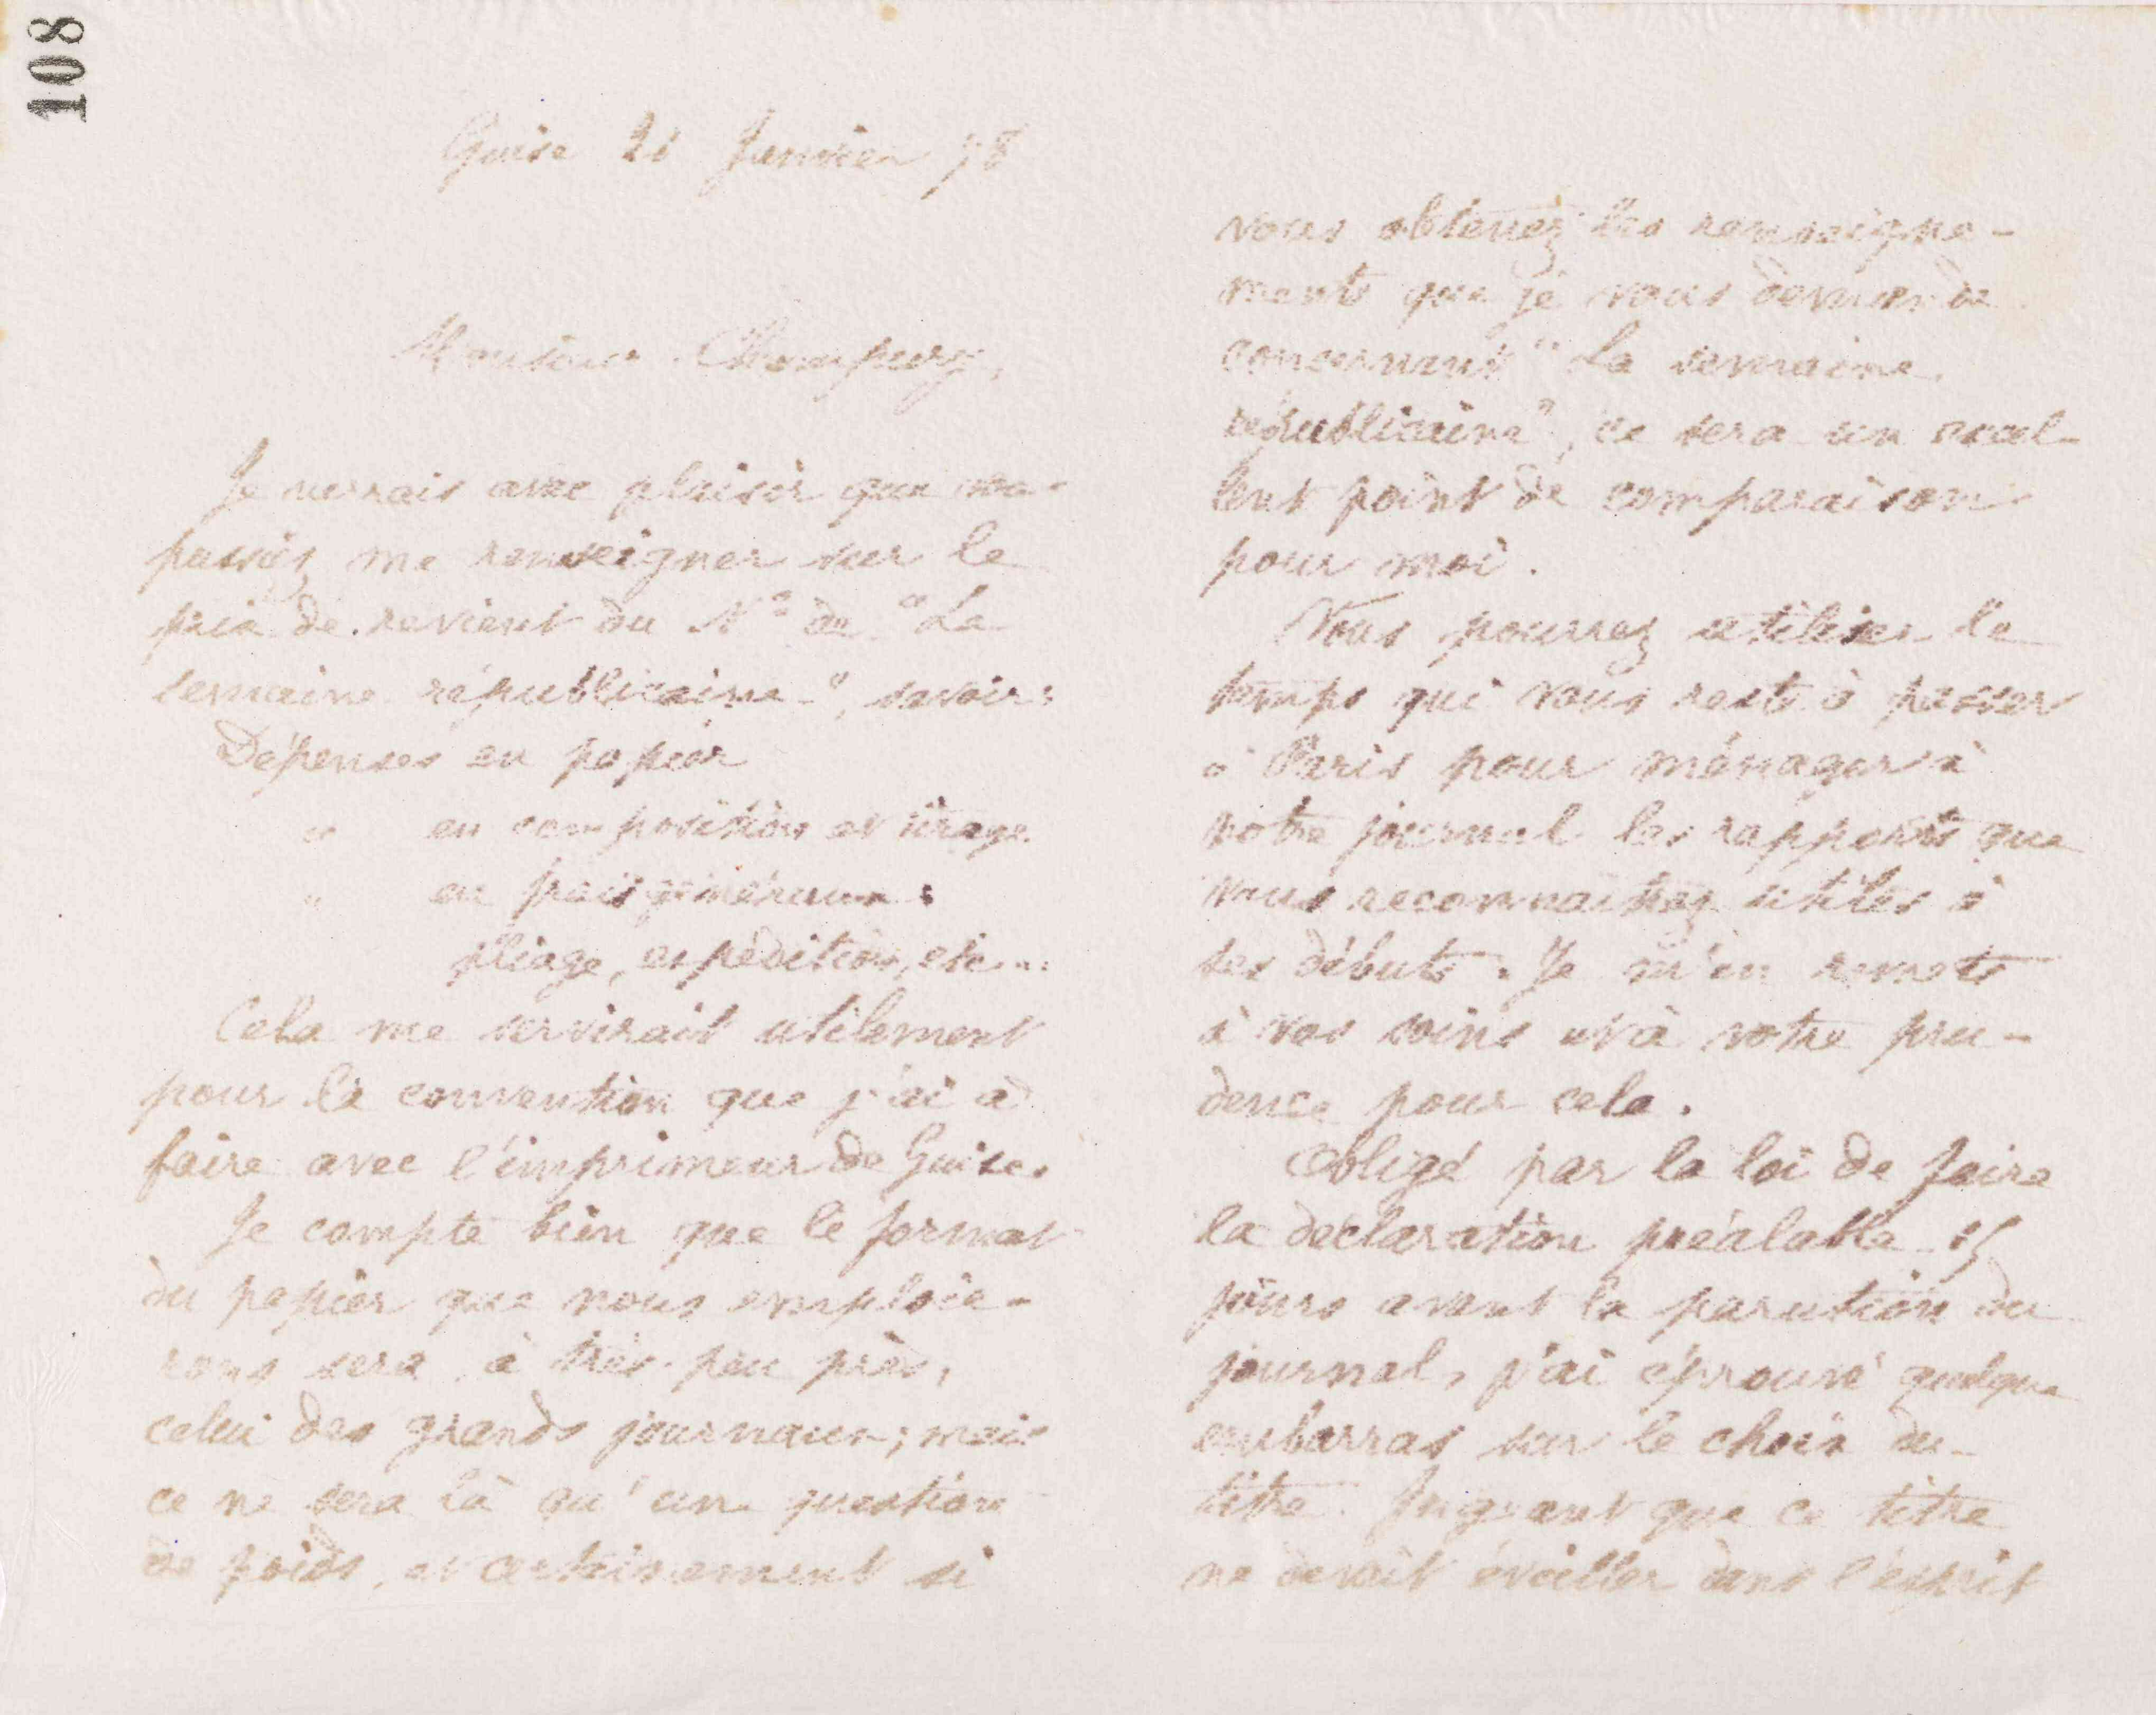 108
Guise 21 Janvier 78
Monsieur Champury,
Je verrais avec plaisir que vou-
puissiez me renseigner sur le
prix de revient du N° de "La
semaine républicaine", savoir:
Dépenses en papier
" en composition et tirage
" en frais généraux:
pliage, expédition, etc...
Cela me servirait utilement
pour la convention que j'ai à
faire avec l'imprimeur de Guise.
Je compte bien que le format
du papier que nous emploie-
rons sera, à très peu près,
celui des grands journaux; mais
ce ne sera là qu'une question
de poids, et certainement si
vous obtenez les renseigne-
ments que je vous demande
concernant "La semaine
républicaine", ce sera un excel-
lent point de comparaison
pour moi.
Vous pourrez utiliser le
temps qui vous reste à passer
à Paris pour ménager à
notre journal les rapports que
vous reconnaîtrez utiles à
ses débuts. Je m'en remets
à vos soins et à votre pru-
dence pour cela.
Obligé par la loi de faire
la déclaration préalable 15
jours avant la parution du
journal, j'ai éprouvé quelque
embarras sur le choix du
titre. Jugeant que ce titre
ne devait éveiller dans l'esprit